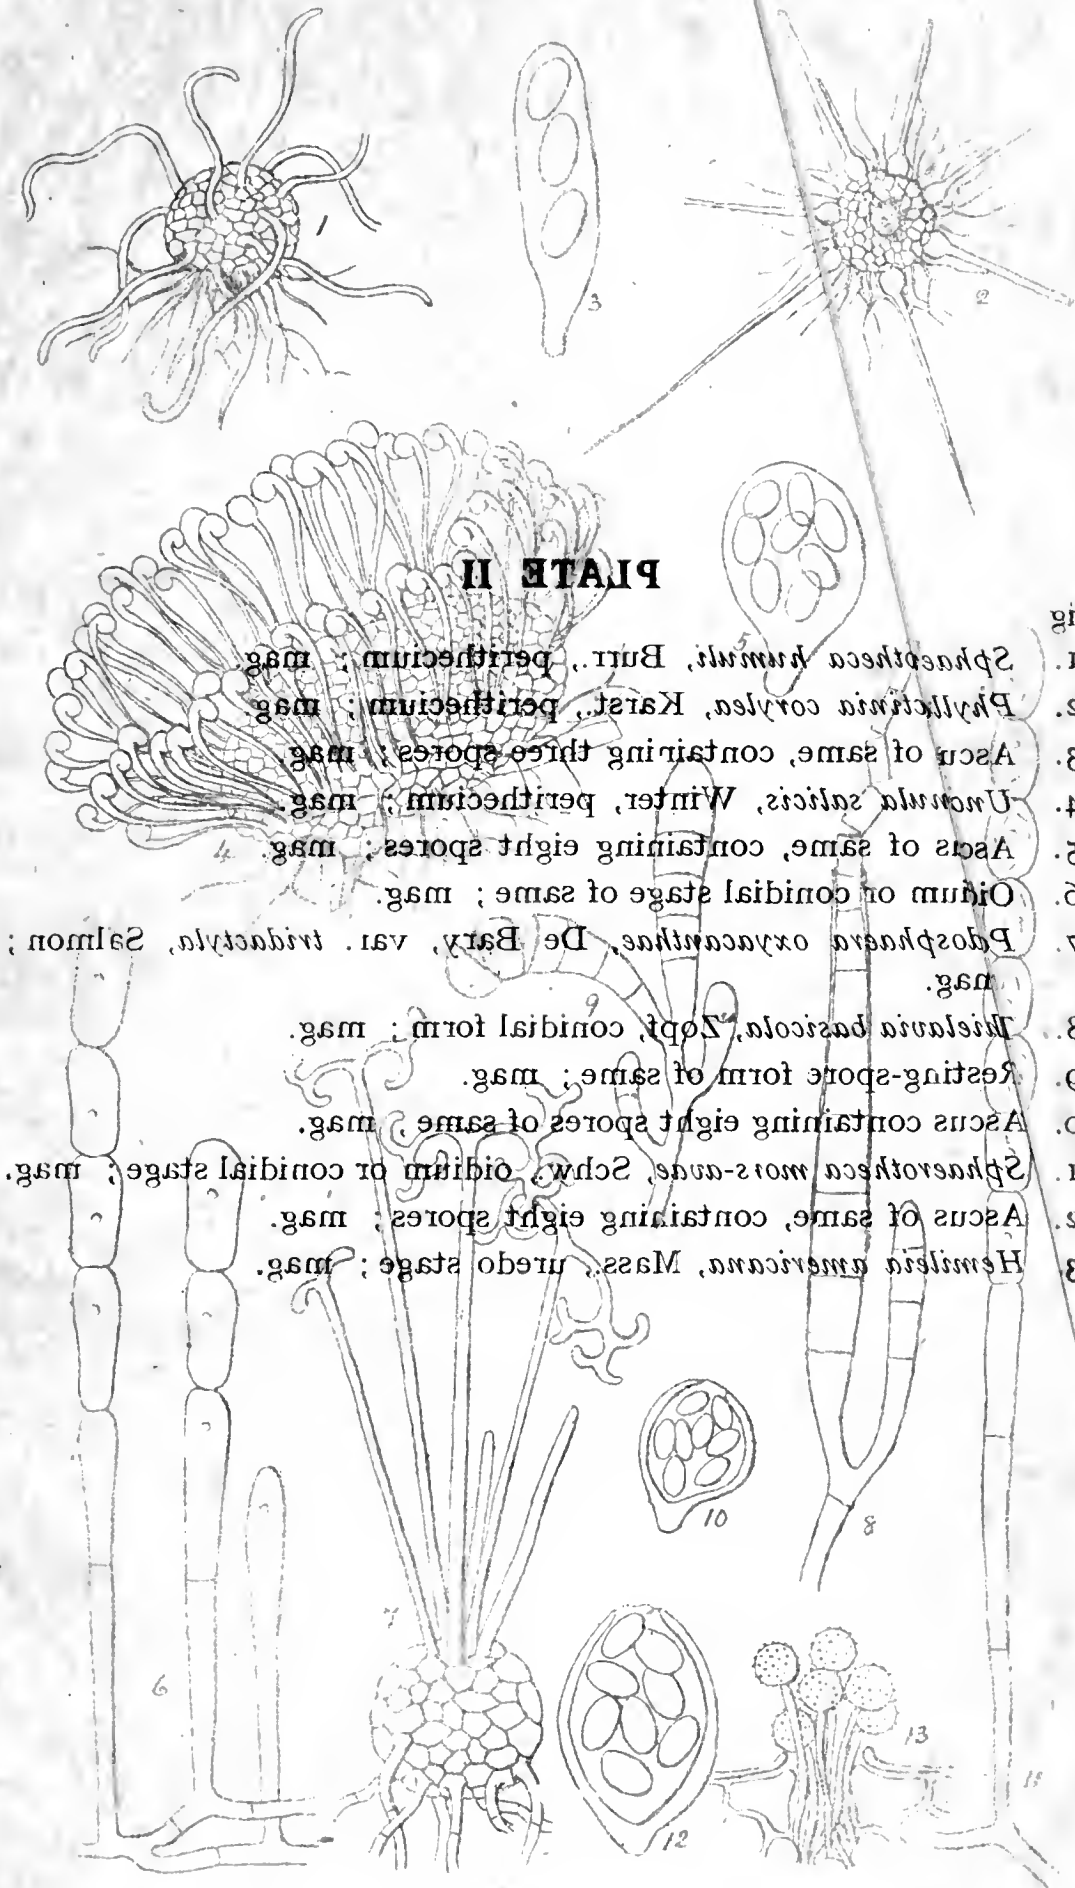 PLATE II
ig
1. Sphaeotheca humuli, Burr., perithecium ; mag.
2. Phyllctinia corylea, Karst., perithecium ; mag.
3. Ascu of same, containing three spores ; mag.
4. Uncnula salicis, Winter, perithecium ; mag.
5. Ascus of same, containing eight spores ; mag.
6. Oidium or conidial stage of same ; mag.
7. Pdosphaera oxyacanthae, De Bary, var. tridactyla, Salmon ;
mag.
8. Thielavia basicola, Zopf, conidial form ; mag.
9. Resting-spore form of same ; mag.
0. Ascus containing eight spores of same ; mag.
1. Sphaerotheca mors-uvae, Schw., oidium or conidial stage ; mag.
2. Ascus of same, containing eight spores ; mag.
3. Hemileia americana, Mass., uredo stage ; mag.
1
2
3
4
5
6
7
8
9
10
11
12
13